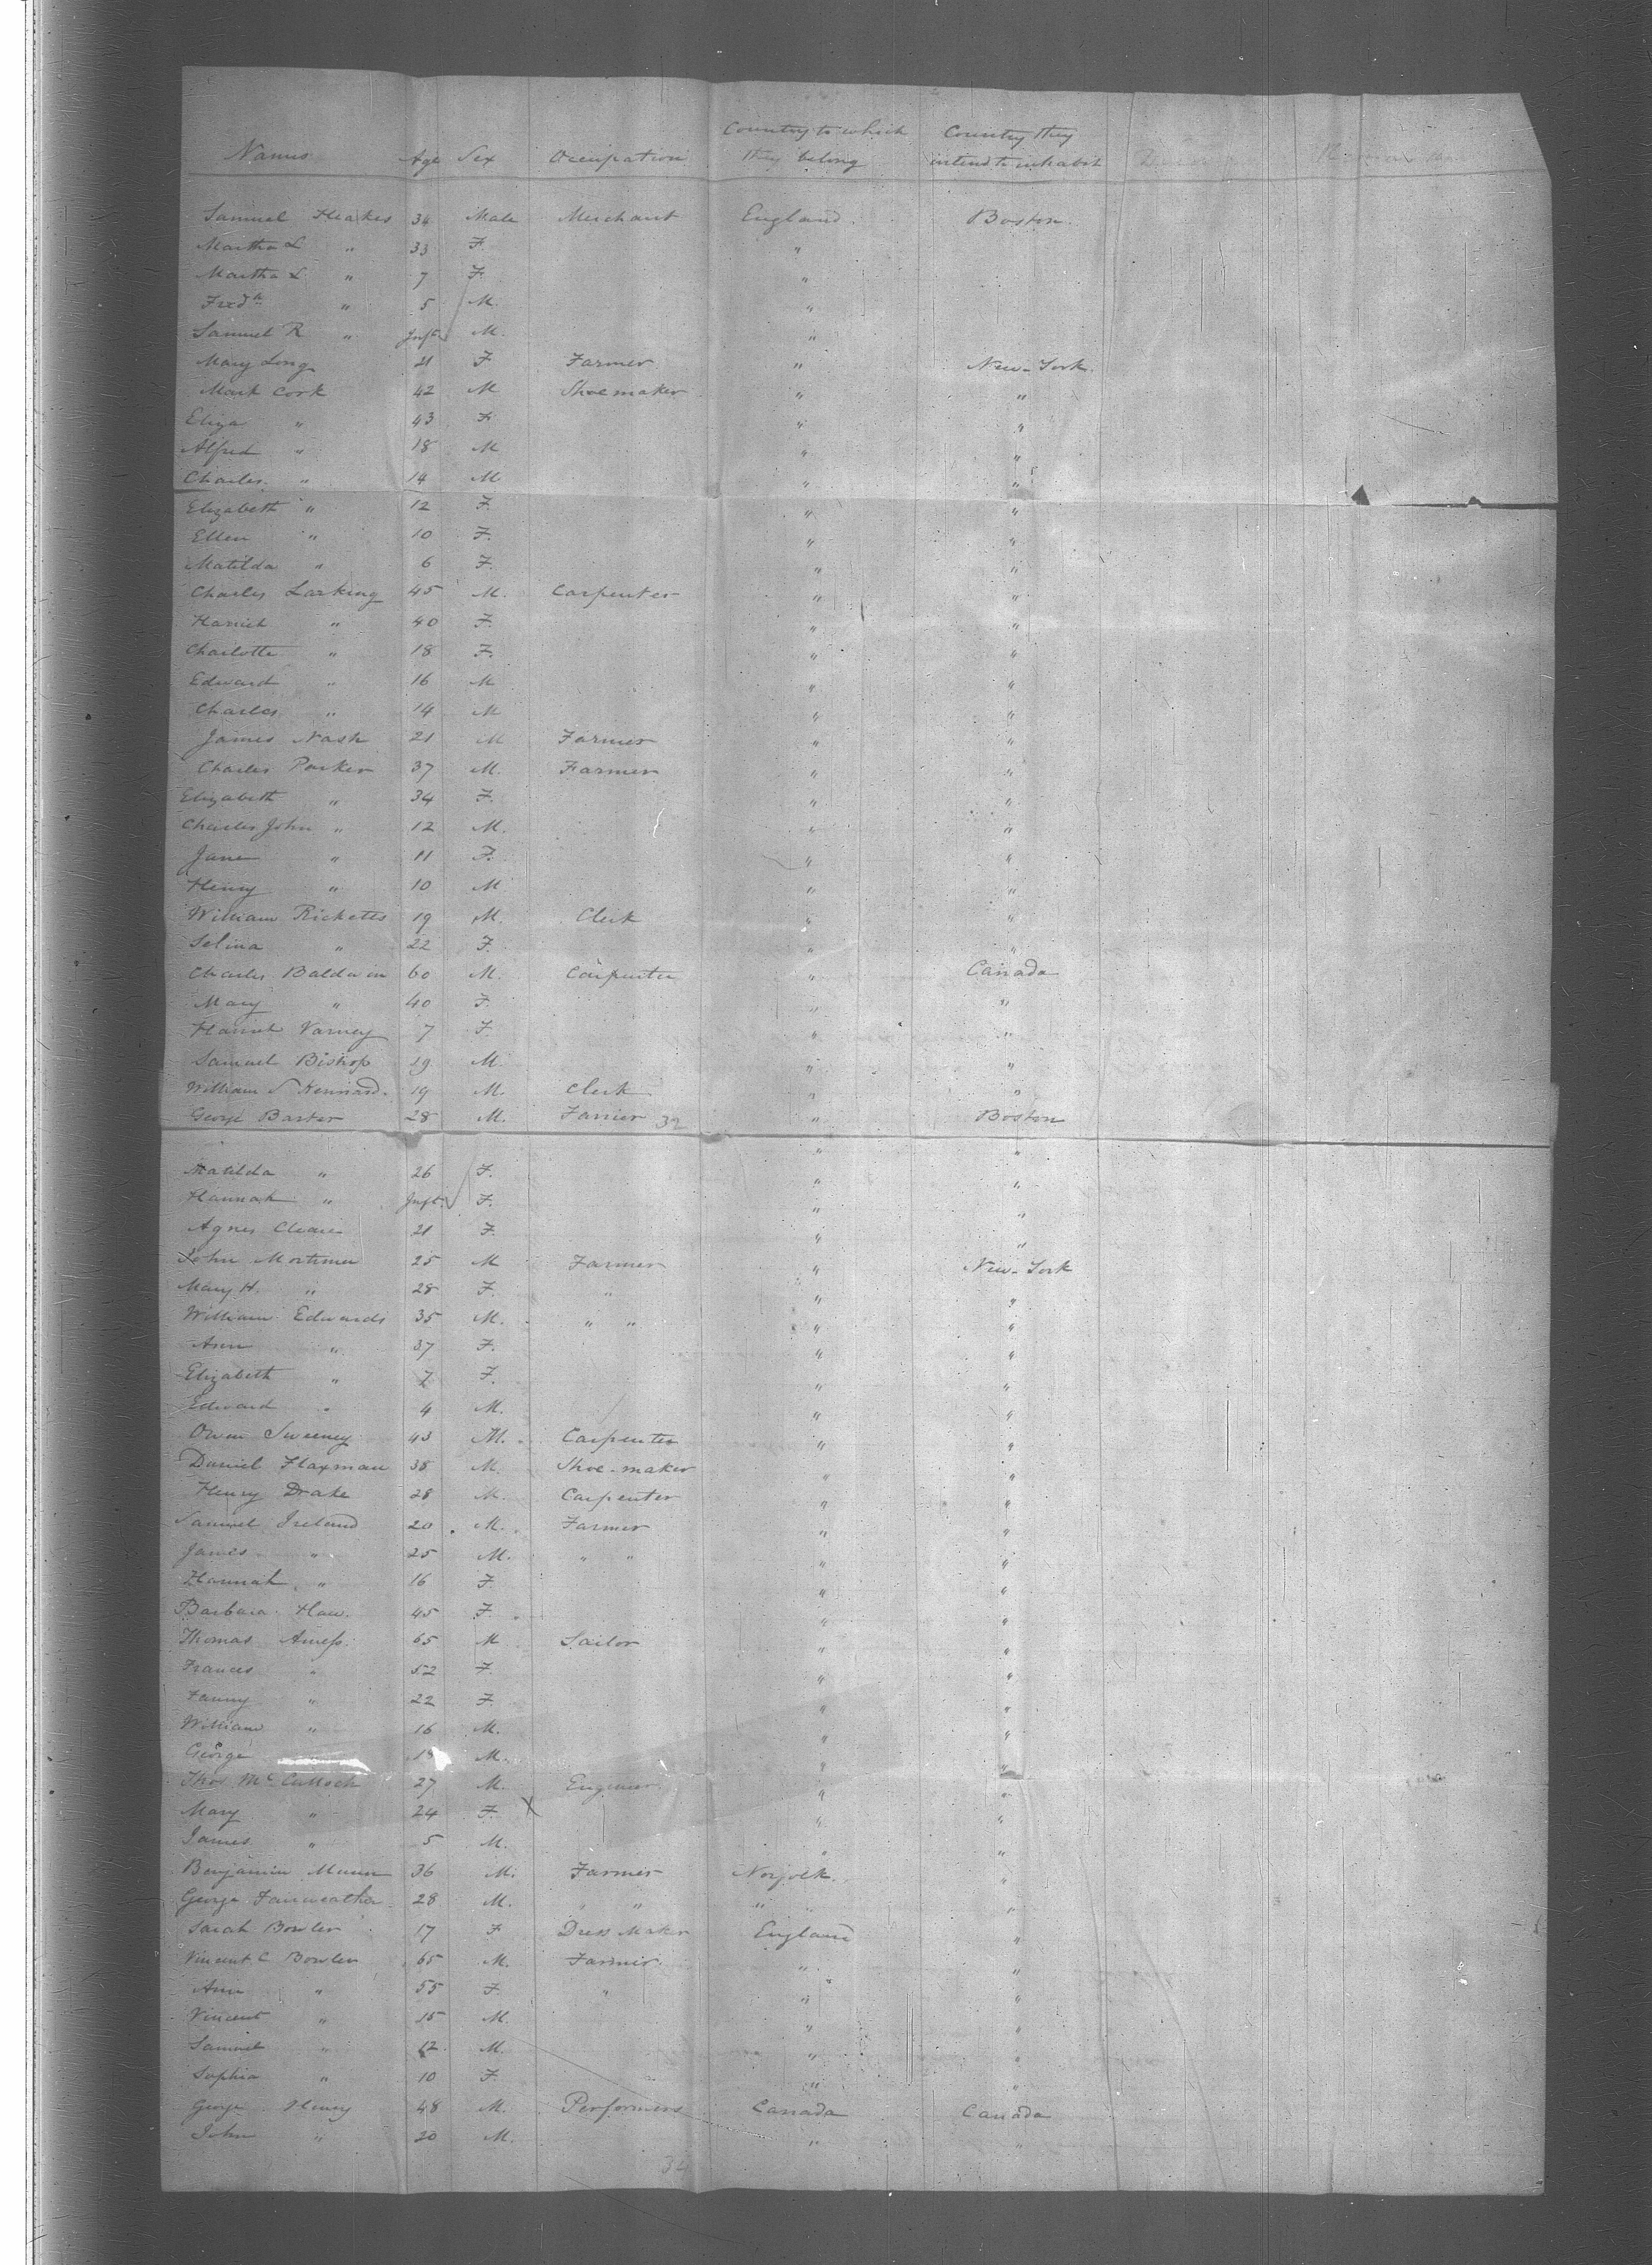 Country to which Country they
Names Age Sex Occupation they belong intend to inhabit
Samuel Heakes 34 Male Merchant England Boston
Martha L " 33 F. "
Martha L " 7 F. "
Fredk " 5 M. "
Samuel R " Inft M. "
Mary Long 21 F Farmer " New-York.
Mark Cork 42 M Shoemaker " "
Eliza " 43 F " "
Alfred " 18 M " "
Charles " 14 M " "
Elizabeth " 12 F. " "
Ellen " 10 F. " "
Matilda " 6 F. " "
Charles Larking 45 M. Carpenter " "
Harriet " 40 F. " "
Charlotte " 18 F. " "
Edward " 16 M " "
Charles " 14 M " "
James Nash 21 M Farmer " "
Charles Parker 37 M. Farmer " "
Elizabeth " 34 F. " "
Charles John " 12 M. " "
Jane " 11 F. " "
Henry " 10 M " "
William Ricketts 19 M. Clerk " "
Selina " 22 F. " "
Charles Baldwin 60 M. Carpenter " Canada
Mary " 40 F. " "
Harriet Varney 7 F. " "
Samuel Bishop 19 M. " "
William S Kennard. 19 M. Clerk " "
George Barter 28 M. Farrier 32 " Boston
" "
Matilda " 26 F. " "
Hannah " Inft. F. " "
Agnes 21 F. " "
John Mortimer 25 M Farmer " New-York
Mary H. " 28 F. " " "
William Edwards 35 M. " " " "
Ann " 37 F. " "
Elizabeth " 7 F. " "
Edward " 4 M. " "
Owen Sweeney 43 M. Carpenter " "
Daniel Flaxman 38 M. Shoe-maker " "
Henry Drake 28 M. Carpenter " "
Samuel Ireland 20 M. Farmer " "
James " 25 M. " " " "
Hannah " 16 F. " "
Barbara Haw. 45 F. " "
Thomas Amess. 65 M Sailor " "
Frances " 52 F. " "
Fanny " 22 F. " "
William " 16 M. " "
George M. " "
Thos McCulloch 27 M. Engineer. " "
Mary " 24 F. X " "
James " 5 M. " "
Benjamin Munn 36 M. Farmer Norfolk. "
George Fairweather 28 M. " " " " "
Sarah Bowler 17 F Dress Maker England "
Vincent C Bowler 65 M. Farmer. " "
Ann " 55 F. " " "
Vincent " 15 M. " "
Samuel " 12 M. " "
Sophia " 10 F. " "
George Henry 48 M. Performers Canada Canada
John " 20 M. " "